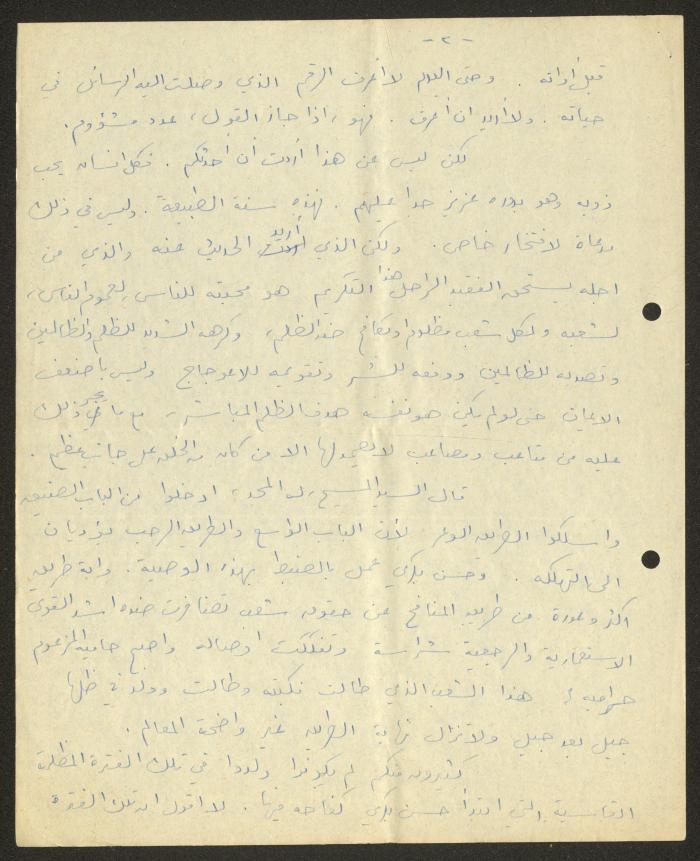 - ٢ -
قبل أوانه . وحتى اليوم لا أعرف الرقم الذي وصلت اليه الرسائل في
حياته . ولا أريد ان أعرف . فهو ، اذا جاز القول ، عدد مشؤوم .
لكن ليس عن هذا أردت أن أحدثكم . فكل انسان يحب
ذويه وهو بدوره عزيز جدا عليهم . فهذه سنة الطبيعة . وليس في ذلك
مدعاة لافتخار خاص . ولكن الذي أريد الحديث عنه والذي من
اجله يستحق الفقيد الراحل هذا التكريم هو محبته للناس ، لعموم الناس ،
لشعبه ولكل شعب مظلوم او مكافح ضد الظلم ، وكرهه الشديد للظلم والظالمين
وتصديه للظالمين ودفعه للشر وتقويمه للاعوجاج وليس باضعف
الايمان حتى لو لم يكن هو نفسه هدف الظلم المباشر ، مع ما يجر ذلك
عليه من متاعب ومصاعب لا يصمد لها الا من كان من الخلق على جانب عظيم .
قال السيد المسيح ، له المجد ، ادخلوا من الباب الضيق
واسلكوا الطريق الوعر لأن الباب الواسع والطريق الرحب يؤديان
الى التهلكة . وحسن بكري عمل بالضبط بهذه الوصية . واية طريق
اكثر وعورة من طريق المنافح عن حقوق شعب تضافرت ضده اشد القوى
الاستعمارية والرجعية شراسة وتفككت اوصاله واصبح حاميه المزعوم
حراميه ؟ هذا الشعب الذي طالت نكبته وطالت وولد في ظلها
جيل بعد جيل ولا تزال نهاية الطريق غير واضحة المعالم .
كثيرون منكم لم يكونوا ولدوا في تلك الفترة المظلمة
القاسية التي ابتدأ حسن بكري كفاحه فيها . لا اقول ان تلك الفترة